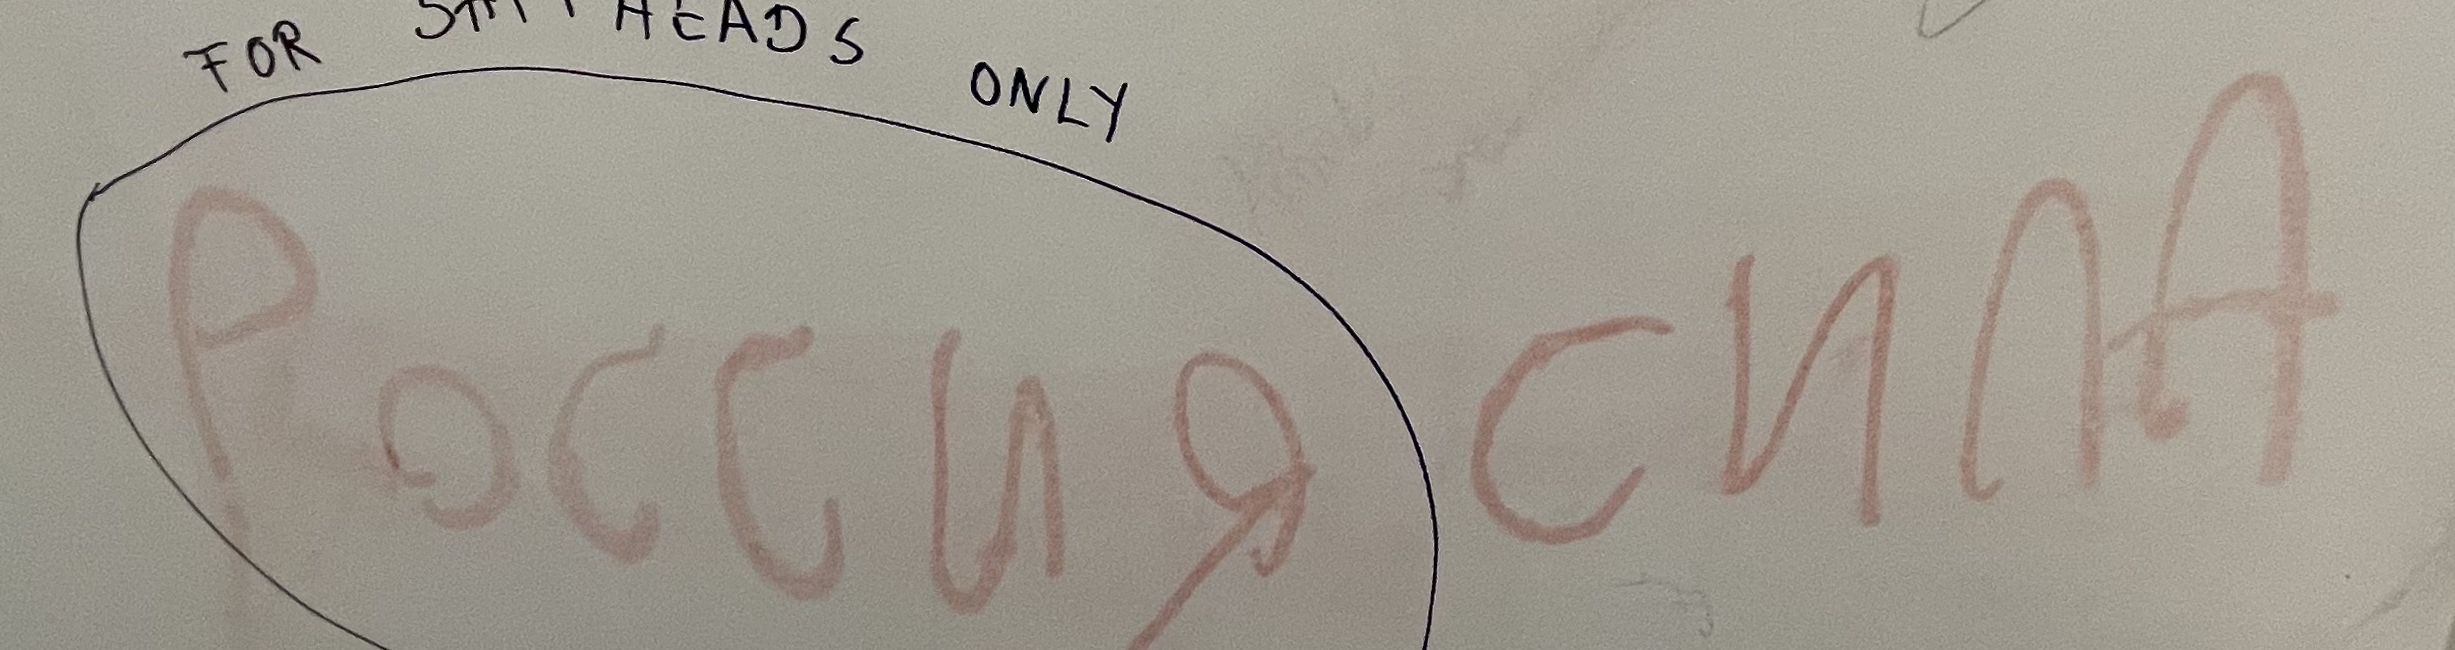 FOR HEADS ONLY
РОССИЯ СИЛА